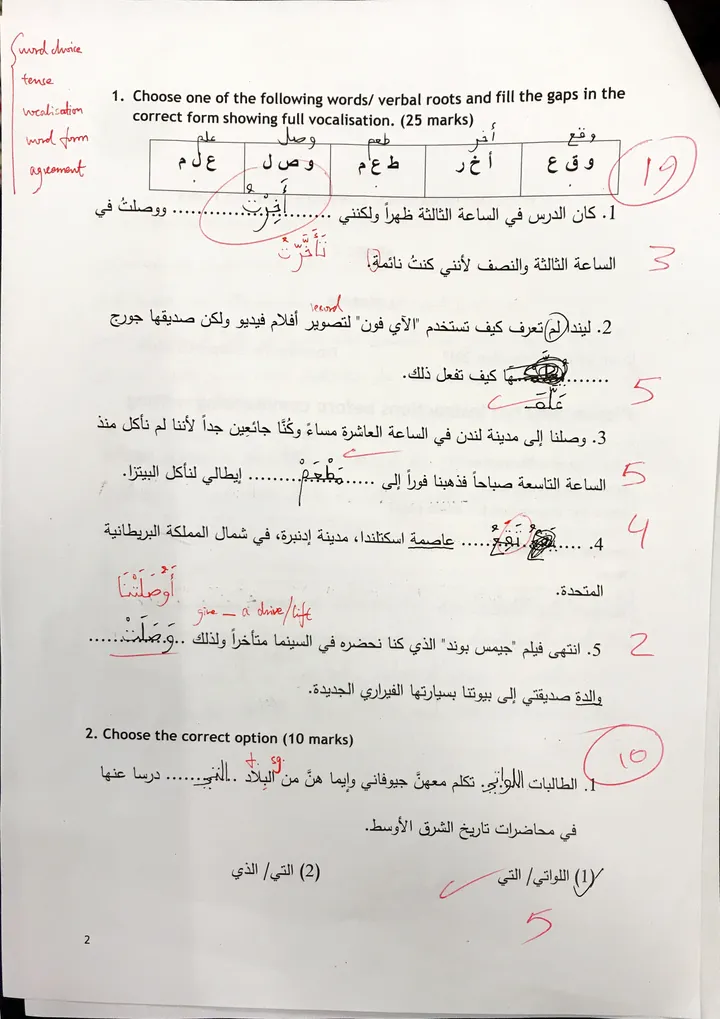 word choice
tense
vocalisation
word form
agreement
1. Choose one of the following words/ verbal roots and fill the gaps in the
correct form showing full vocalisation. (25 marks)
وقع أخر طعم وصل علم
و ق ع أ خ ر ط ع م و ص ل ع ل م
19
1. كان الدرس في الساعة الثالثة ظهراً ولكنني ........ أَخِرْتُ ........ ووصلتُ في
تَأَخَّرْتُ
الساعة الثالثة والنصف لأنني كنتُ نائمة.
3
record
2. ليندا لم تعرف كيف تستخدم "الآي فون" لتصوير أفلام فيديو ولكن صديقها جورج
........ هَا كيف تفعل ذلك.
عَلَّمَ
5
3. وصلنا إلى مدينة لندن في الساعة العاشرة مساءً وكُنَّا جائعِين جداً لأننا لم نأكل منذ
الساعة التاسعة صباحاً فذهبنا فوراً إلى ........ مَطْعَمْ ........ إيطالي لنأكل البيتزا.
5
4. ........ تَقَعُ ........ عاصمة اسكتلندا، مدينة إدنبرة، في شمال المملكة البريطانية
4
المتحدة.
أَوْصَلَتْنَا
give _ a drive/lift
5. انتهى فيلم "جيمس بوند" الذي كنا نحضره في السينما متأخراً ولذلك ..وَصَلَتْ........
2
والدة صديقتي إلى بيوتنا بسيارتها الفيراري الجديدة.
2. Choose the correct option (10 marks)
10
f. sg.
1. الطالبات اللواتي. تكلم معهنَّ جيوفاني وإيما هنَّ من البِلاد ..التي........ درسا عنها
في محاضرات تاريخ الشرق الأوسط.
(1) اللواتي/ التي (2) التي/ الذي
5
2